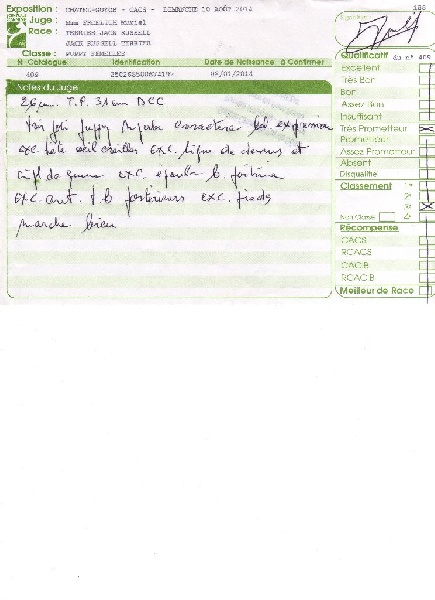 Exposition : CHATEL-GUYON - CACS - DIMANCHE 10 AOÛT 2014
Juge : Mme
Race : TERRIER JACK RUSSELL
JACK RUSSELL TERRIER
Classe : PUPPY FEMELLES
N° Catalogue Identification Date de Naissance à Confirmer
409 09/01/2014
Notes du Juge
26 cm T.P. 31 cm DCC
Très joli puppy superbe caractère bo expression
exc. tête œil oreilles exc. ligne de dessus et
de queue exc. épaule b. poitrine
exc. ant. t.b. postérieurs exc. pieds
marche bien
186
Signature
Qualificatif du n° 409
Excellent
Très Bon
Bon
Assez Bon
Insuffisant
Très Prometteur
Prometteur
Assez Prometteur
Absent
Disqualifié
Classement 1er
2e
3e
Non Classé 4e
Récompense
CACS
RCACS
CACIB
RCACIB
Meilleur de Race